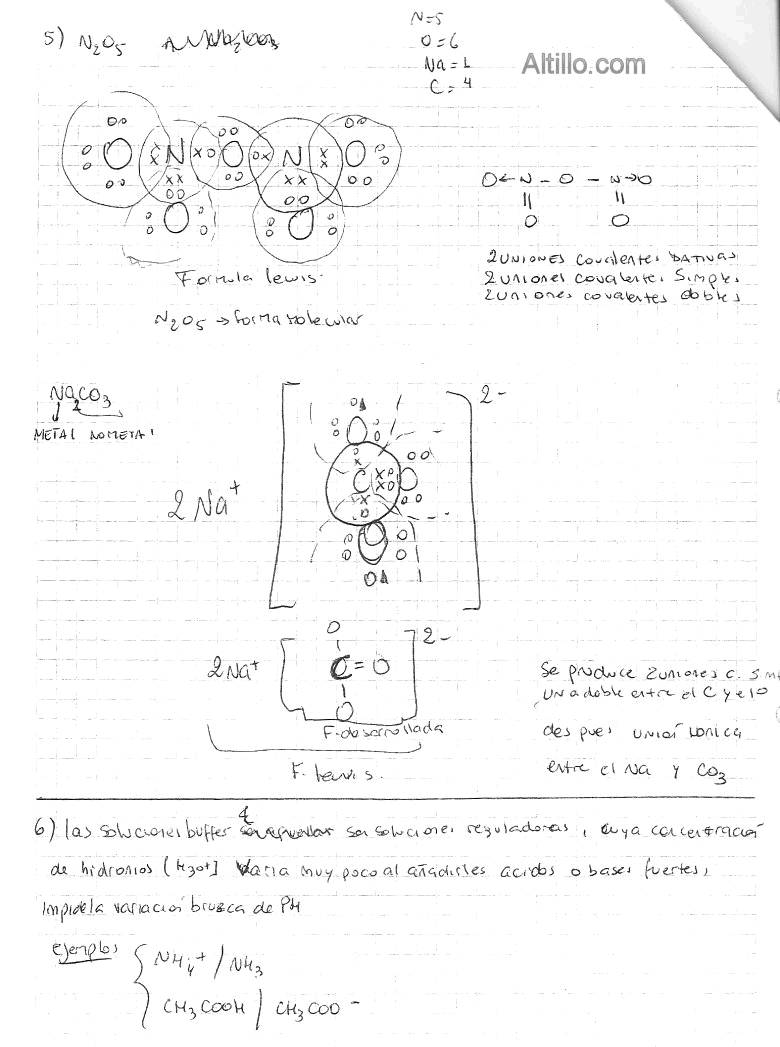 N=5
5) N2O5
O=6
Na=1
C=4
Altillo.com
O N O N O
O O
O←N-O-N→O
|| ||
O O
2 UNIONES covalentes DATIVAS
2 UNIONES covalentes Simples
2 uniones covalentes dobles
Formula lewis.
N2O5 → forma molecular
Na2CO3
METAL NO METAL
2-
2Na+
O
C O
O
O
2Na+ [C=O]2-
O
F. desarrollada
F. lewis.
Se produce 2 uniones c. sim
una doble entre el C y el O
despues unión ionica
entre el Na y CO3
6) las soluciones buffer son soluciones reguladoras, cuya concentración
de hidronios [H3O+] varia muy poco al añadirles acidos o bases fuertes,
impide la variación brusca de PH
ejemplos
NH4+ / NH3
CH3COOH / CH3COO-